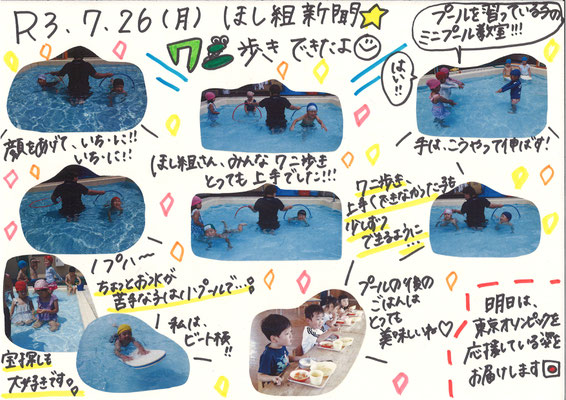 R3.7.26(月) ほし組新聞
ワニ歩きできたよ
プールを習っている子の
ミニプール教室!!!
はい!!
手は、こうやって伸ばす!
顔をあげて、いち・に!!
いち・に!!
ほし組さん、みんなワニ歩き
とっても上手でした!!!
ワニ歩き、
上手くできなかった子も
少しずつ
できるように…
プハ〜
ちょっとお水が
苦手な子は小プールで…。
宝探しも
大好きです。
私は、
ビート板!!
プールの後の
ごはんは
とっても
美味しいね♡
明日は、
東京オリンピックを
応援している姿を
お届けします